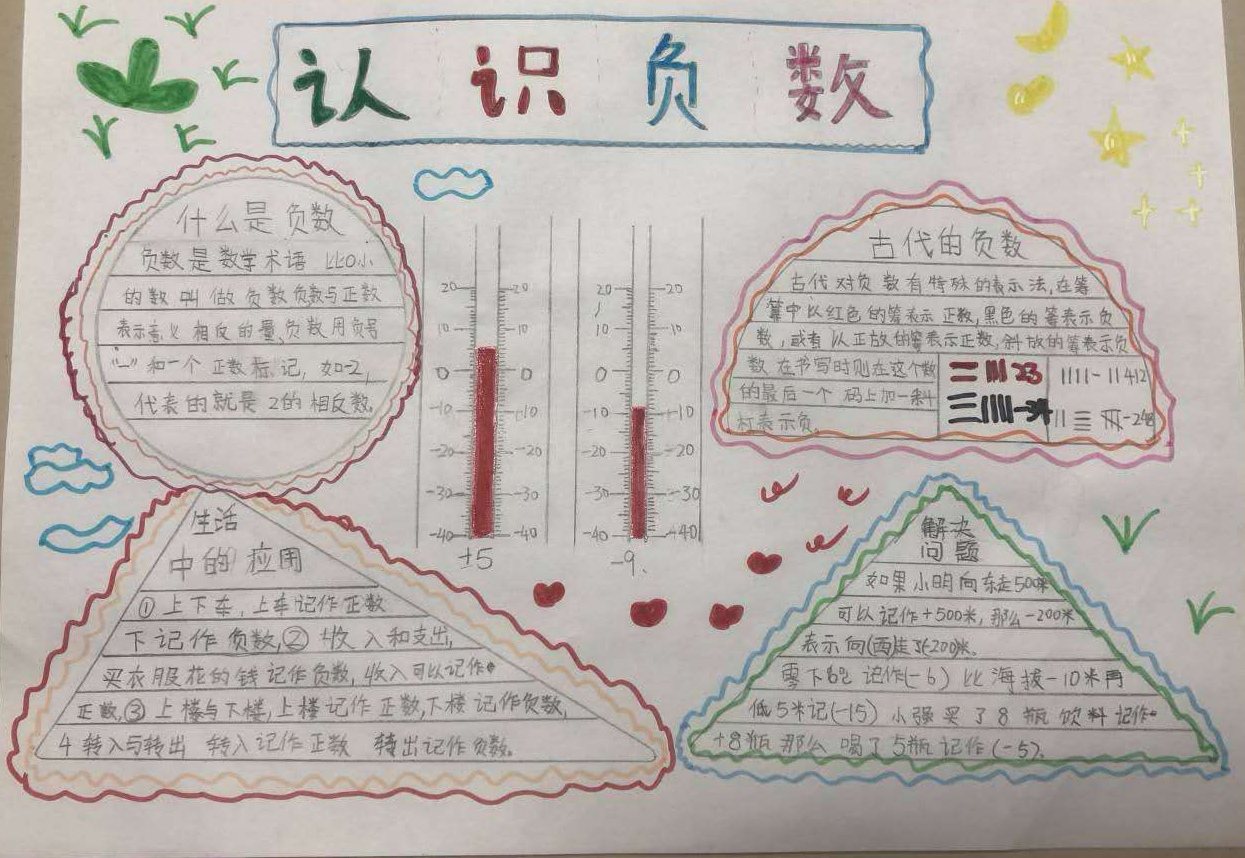 认识负数
什么是负数
负数是数学术语 比0小
的数叫做负数负数与正数
表示意义相反的量,负数用负号
"-"和一个正数标记,如-2,
代表的就是2的相反数。
20 20 20 20
10 10 10 10
0 0 0 0
-10 -10 -10 -10
-20 -20 -20 -20
-30 -30 -30 -30
-40 -40 -40 -40
+5 -9
古代的负数
古代对负数有特殊的表示法,在筹
筹中以红色的筹表示正数,黑色的筹表示负
数,或者以正放的筹表示正数,斜放的筹表示负
数在书写时则在这个数
的最后一个码上加一斜
杠表示负。
23
-34
-11412
-248
生活
中的应用
①上下车,上车记作正数
下记作负数,②收入和支出,
买衣服花的钱记作负数,收入可以记作
正数,③上楼与下楼,上楼记作正数,下楼记作负数,
4转入与转出 转入记作正数 转出记作负数。
解决
问题
如果小明向东走500米
可以记作+500米,那么-200米
表示向(西)走了(200)米。
零下6℃记作(-6)比海拔-10米再
低5米记(-15)小强买了8瓶饮料记作
+8瓶那么喝了5瓶记作(-5)。